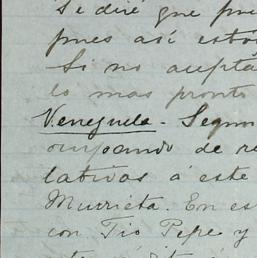 Se diré que pue
pues así está
Si no acepta
lo mas pronto
Venezuela. Segun
ocupando de re
lativas á este
Murrieta. En es
con Tio Pepe y